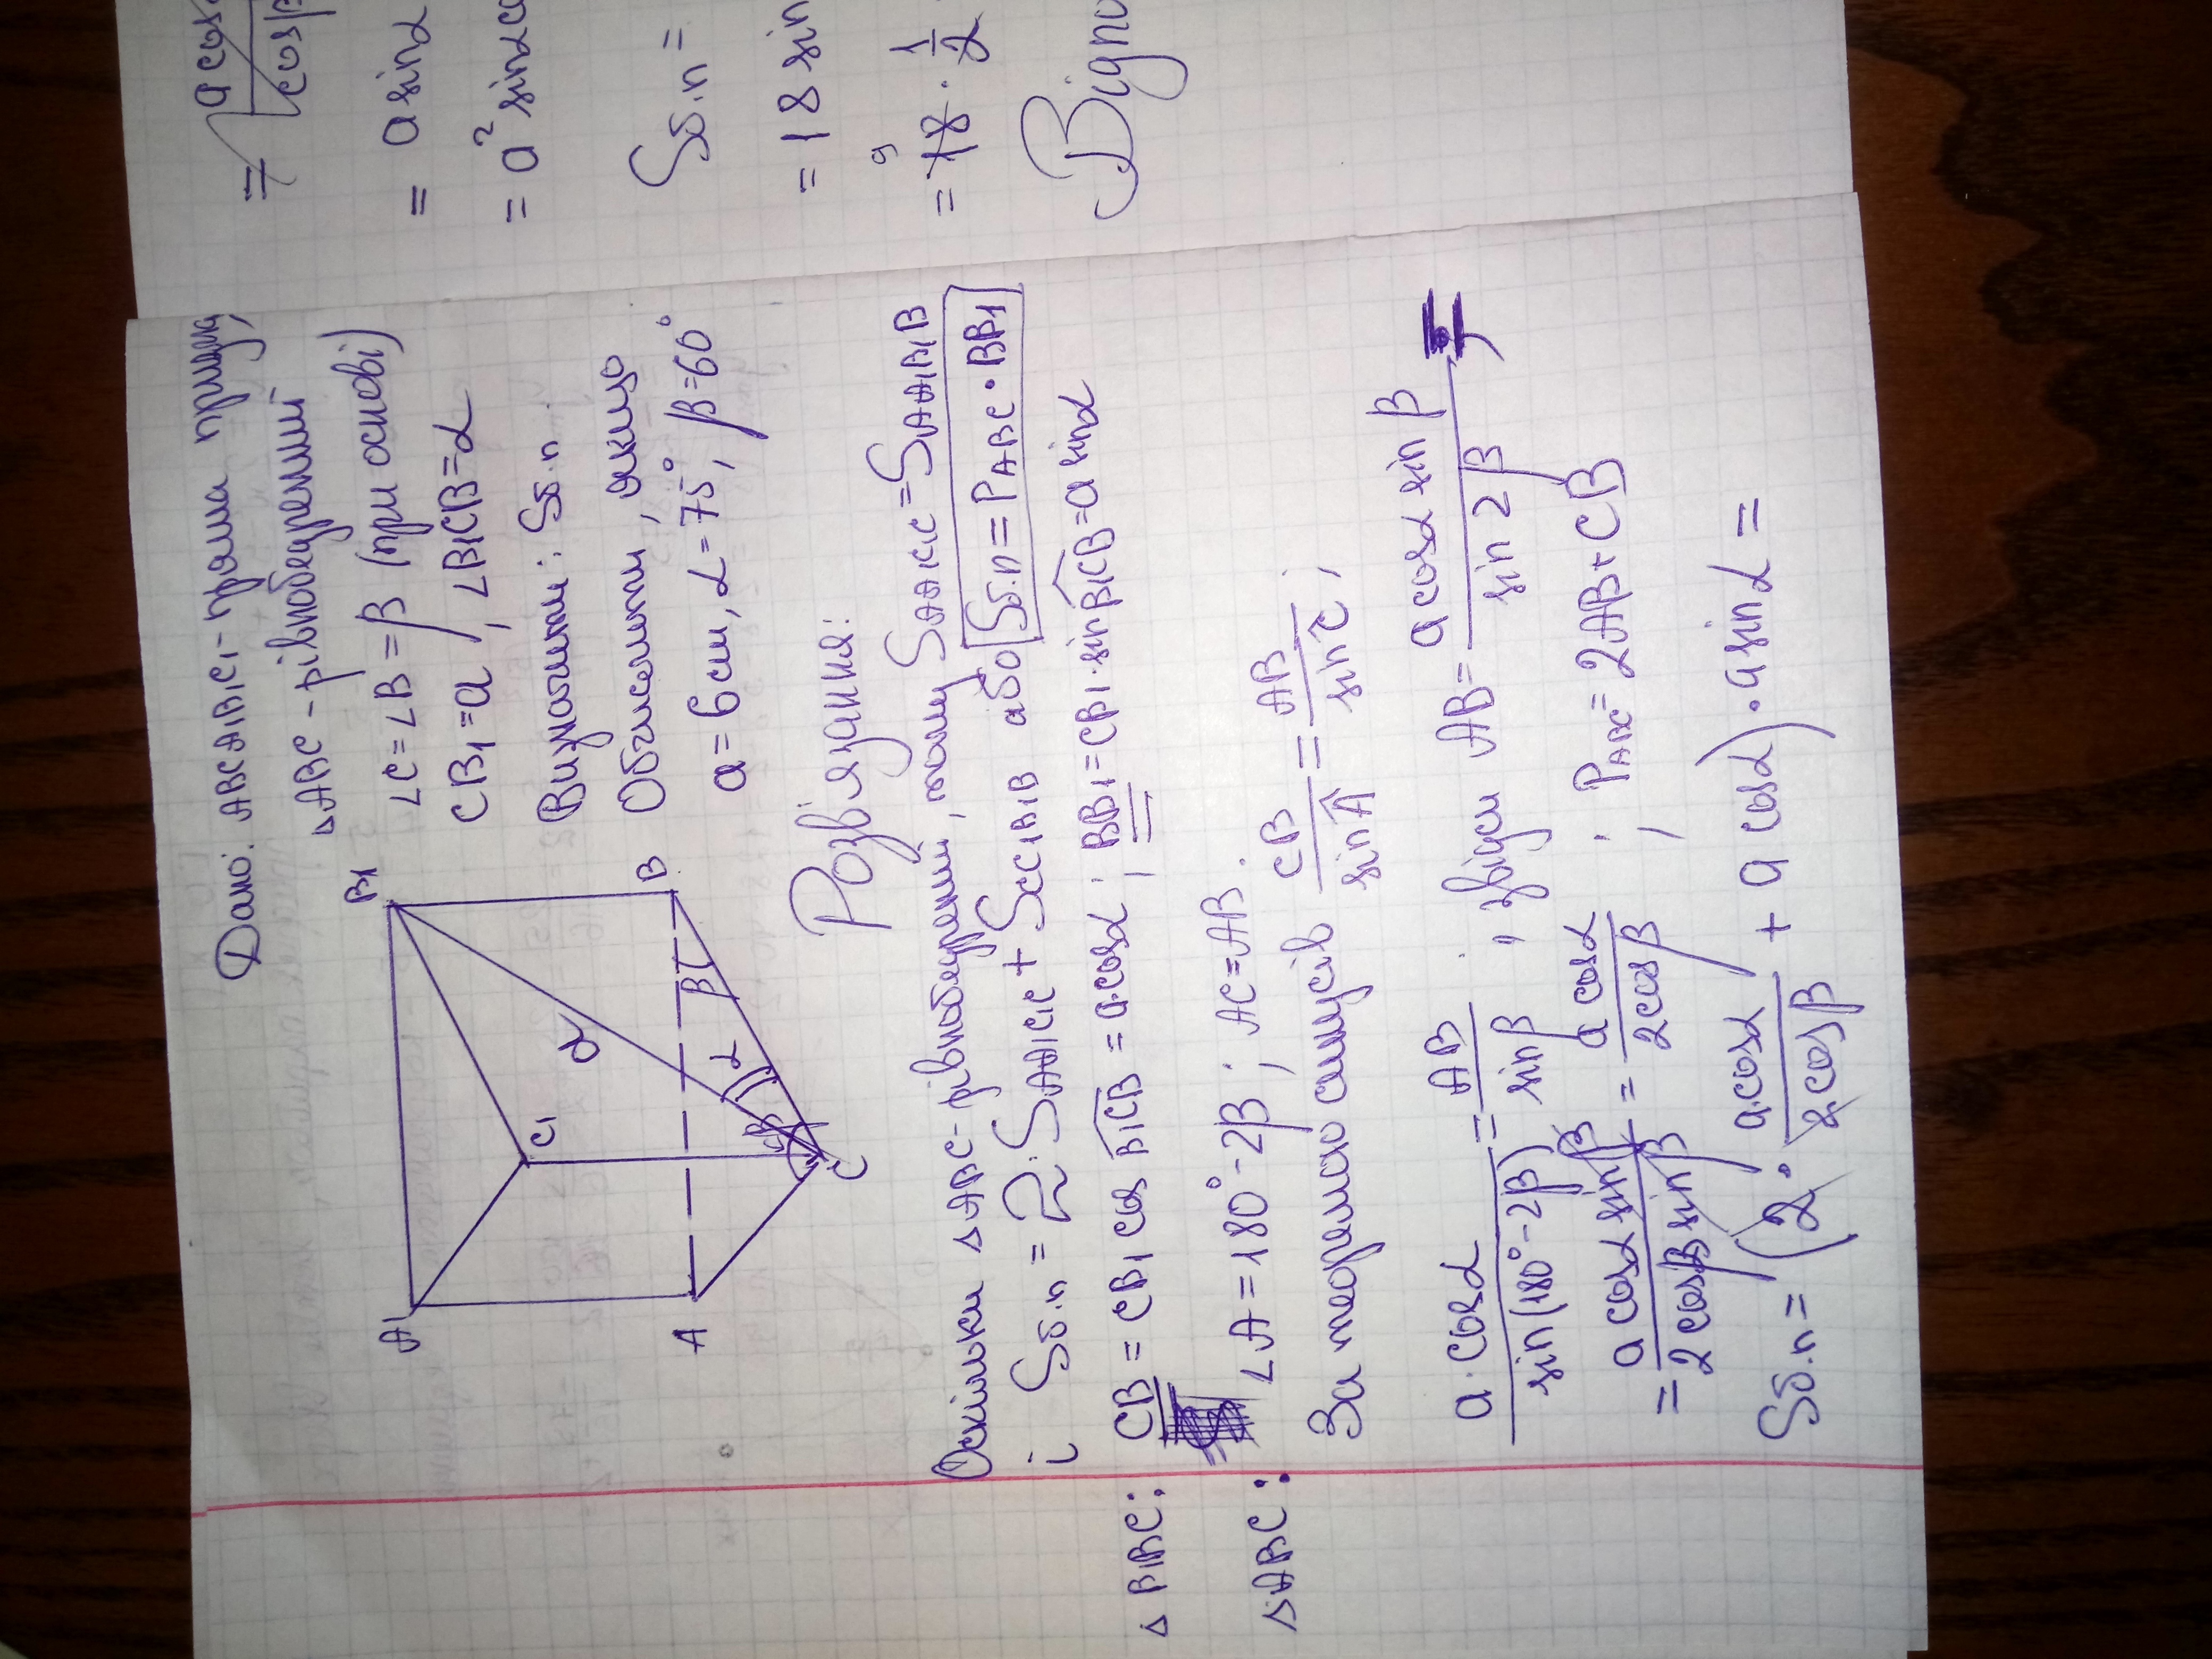 Дано: ABCA1B1C1 - пряма призма,
△ABC - рівнобедрений
∠C=∠B=β (при основі)
CB1=a, ∠B1CB=α
Визначити: Sб.п
Обчислити, якщо
a=6см, α=75°, β=60°
A1
B1
C1
a
α
β
β
A
B
C
Розв'язання:
Оскільки △ABC - рівнобедрений, тому SAA1C1C=SAA1B1B
і Sб.п = 2·SAA1C1C + SCC1B1B або Sб.п=PABC·BB1
△B1BC: CB=CB1 cos B1CB = a·cosα; BB1=CB1·sin B1CB=a sinα
△ABC: ∠A=180°-2β; AC=AB.
За теоремою синусів CB/sin A = AB/sin C;
a·cosα/sin(180°-2β) = AB/sinβ, звідси AB = a cosα sinβ/sin 2β =
= a cosα sinβ/2cosβ sinβ = a cosα/2cosβ; PABC=2AB+CB
Sб.п=(2·a·cosα/2cosβ + a cosα)·a sinα=
= a cos
cosβ
= a sinα
= a² sinα co
Sб.п =
= 18 sin
9
= 18·1/2